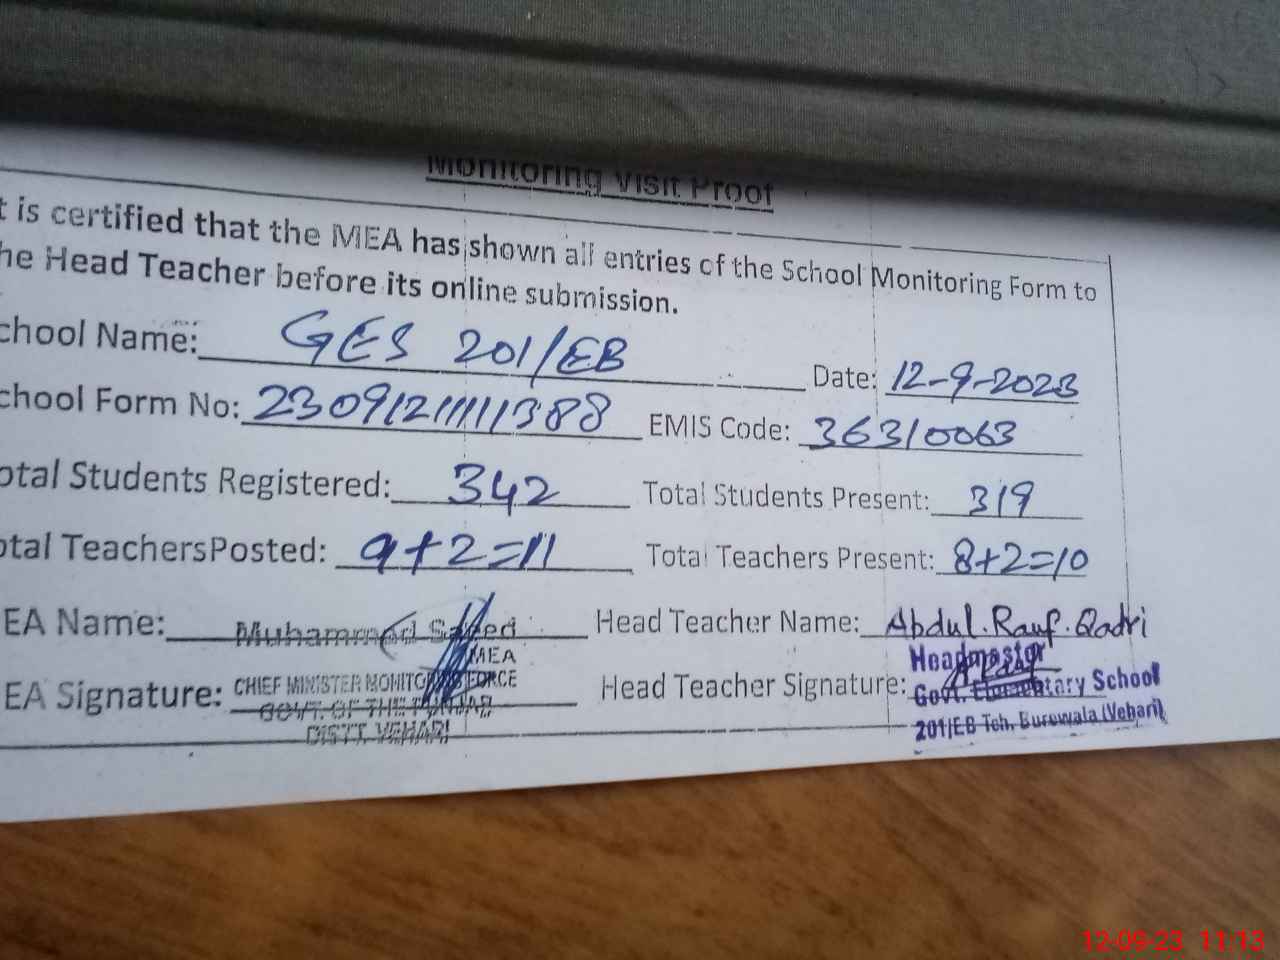 Monitoring Visit Proof
t is certified that the MEA has shown all entries of the School Monitoring Form to
he Head Teacher before its online submission.
chool Name: GES 201/EB Date: 12-9-2023
chool Form No: 23091211111388 EMIS Code: 36310063
otal Students Registered: 342 Total Students Present: 319
otal TeachersPosted: 9+2=11 Total Teachers Present: 8+2=10
EA Name: Muhammad Saeed Head Teacher Name: Abdul.Rauf.Qadri
MEA
EA Signature: CHIEF MINISTER MONITORING FORCE Head Teacher Signature: Headmaster
GOVT. OF THE PUNJAB Govt. Elementary School
DISTT. VEHARI 201/EB Teh. Burewala (Vehari)
12-09-23 11:13